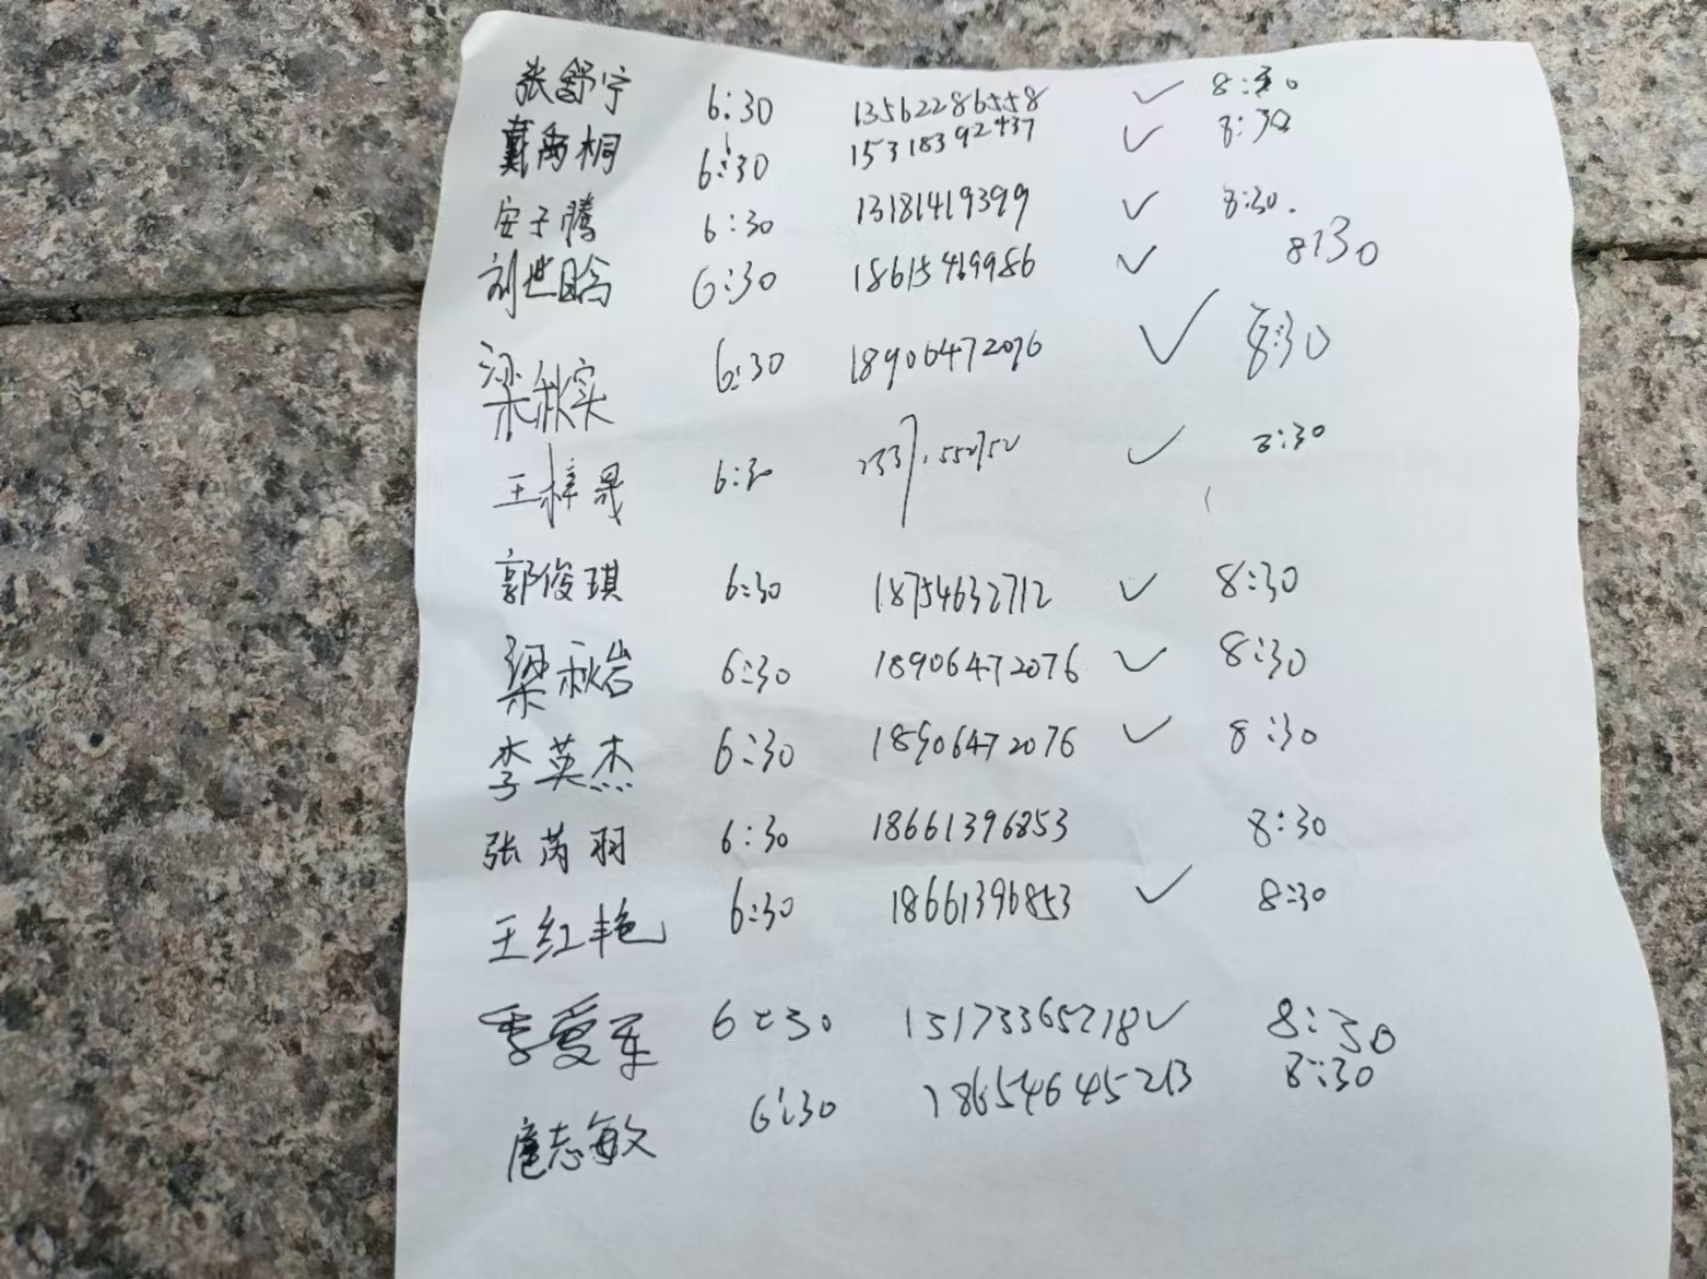 张舒宁 6:30 13562286558 ✓ 8:30
戴禹桐 6:30 15318392437 ✓ 8:30
安子腾 6:30 13181419399 ✓ 8:30.
刘世晗 6:30 18615469986 ✓ 8:30
梁秋实 6:30 18906472076 ✓ 8:30
王梓晟 6:30 ✓ 8:30
郭俊琪 6:30 18754632712 ✓ 8:30
梁秋岩 6:30 18906472076 ✓ 8:30
李英杰 6:30 18906472076 ✓ 8:30
张芮羽 6:30 18661396853 8:30
王红艳 6:30 18661396853 ✓ 8:30
李爱军 6:30 15173365218 ✓ 8:30
扈志敏 6:30 18654645213 8:30